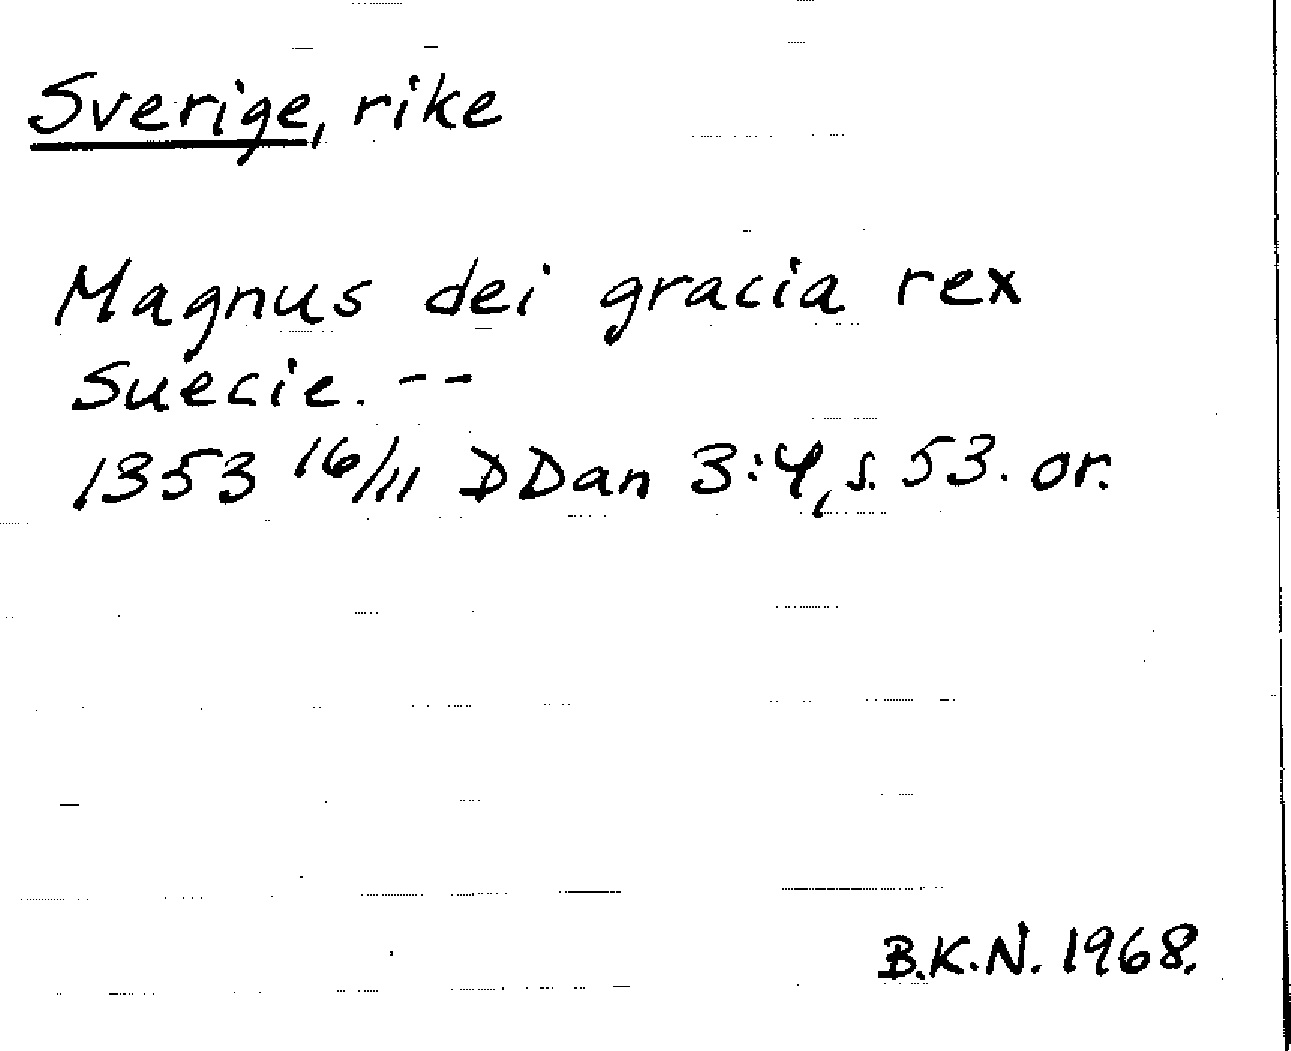 Sverige, rike
Magnus dei gracia rex
Suecie. --
1353 16/11 DDan 3:4, s. 53. or.
B.K.N. 1968.